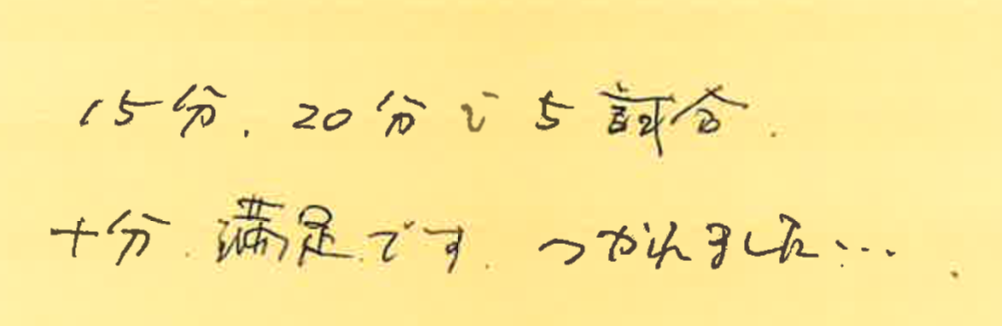 15分、20分で5試合.
十分.満足です.つかれました….